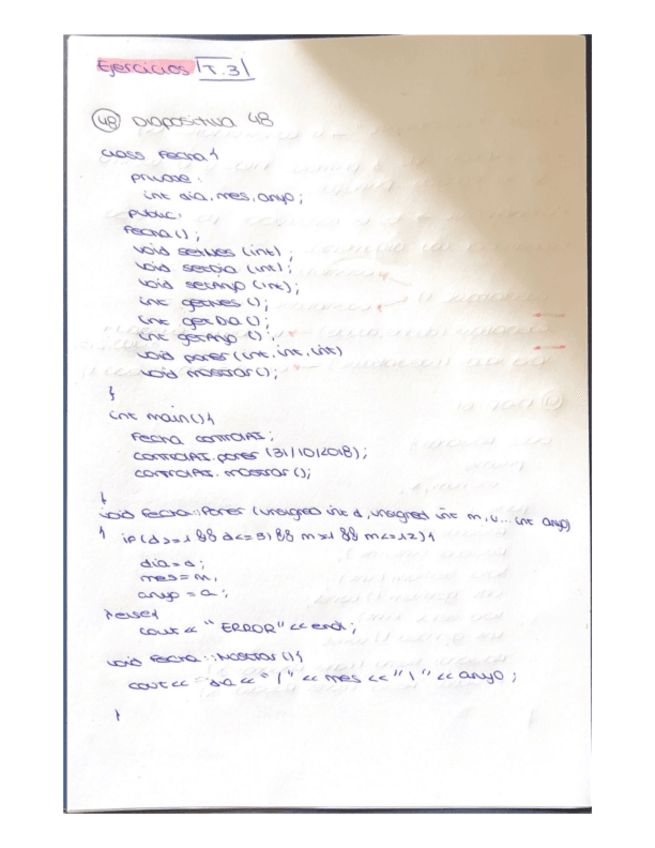 Ejercicios T.3
48 Diapositiva 48
class Fecha{
private:
int dia, mes, anyo;
public:
Fecha();
void setMes (int);
void setDia (int);
void setAnyo (int);
int getMes ();
int getDia ();
int getAnyo ();
void poner (int, int, int)
void mostrar ();
}
int main(){
Fecha controlAI;
controlAI.poner (31/10/2018);
controlAI.mostrar ();
}
void Fecha::Poner (unsigned int d, unsigned int m, u... int anyo)
{ if (d>=1 && d<=31 && m>=1 && m<=12){
dia = d;
mes = m,
anyo = a;
}else{
cout << "ERROR" << endl;
void Fecha::Mostrar(){
cout << dia << "/" << mes << "/" << anyo;
}